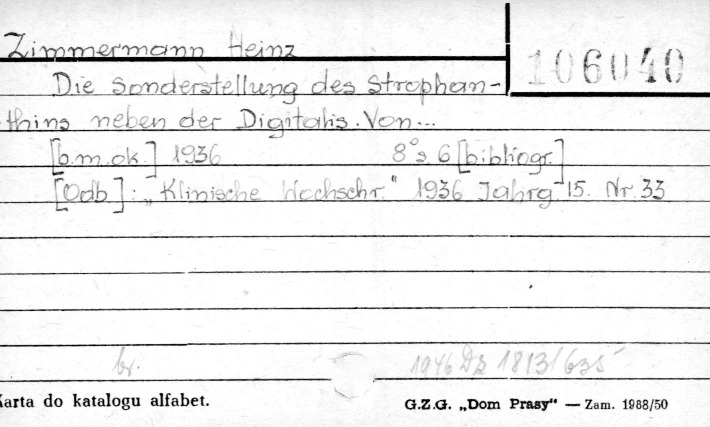 Zimmermann Heinz
106040
Die Sonderstellung des Strophan-
thins neben der Digitalis. Von...
[b.m.ok.] 1936 8° s. 6 [bibliogr.]
[Odb.]: „Klinische Wochschr." 1936 Jahrg. 15. Nr. 33
br. 1946 DZ 1813/635
Karta do katalogu alfabet. G.Z.G. „Dom Prasy" — Zam. 1988/50